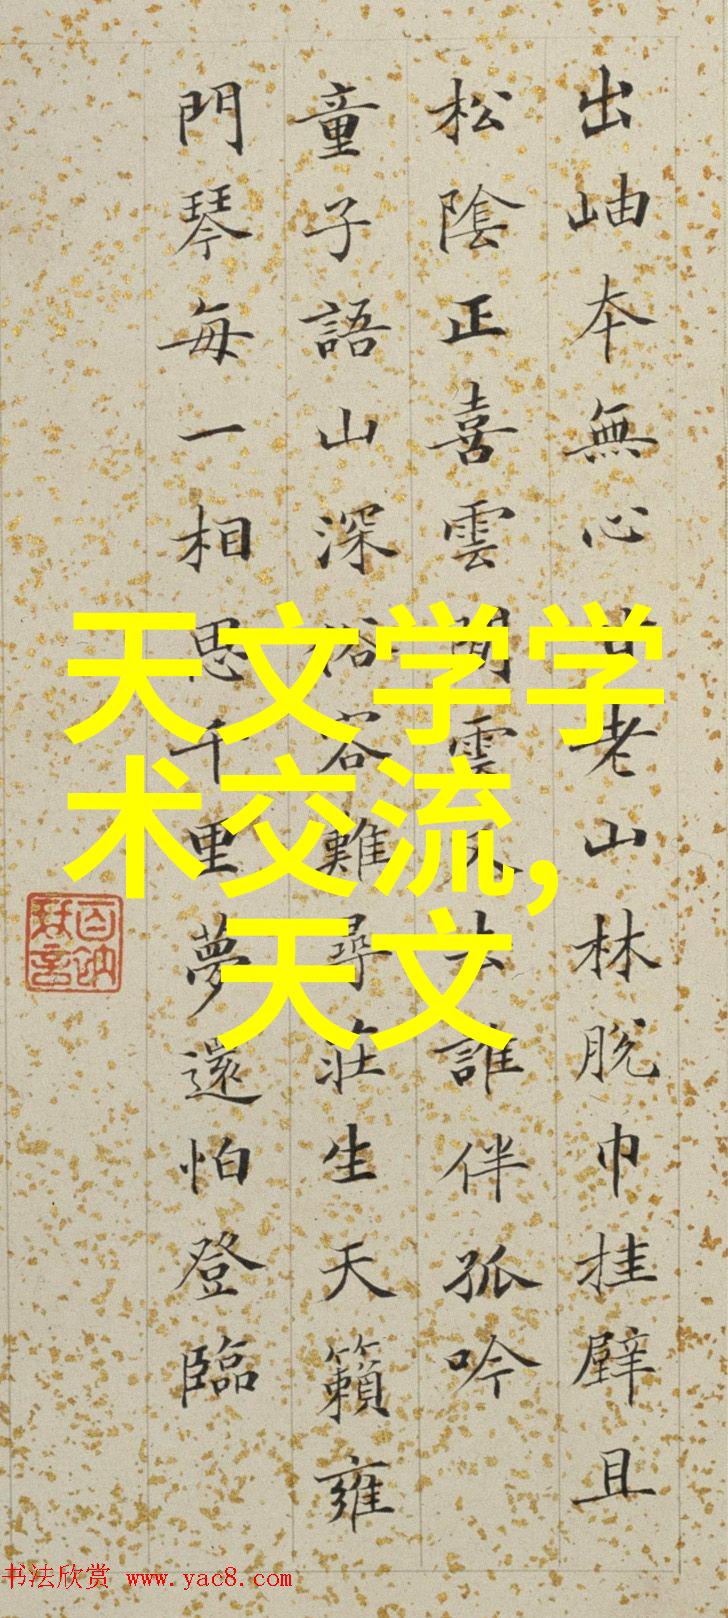 出岫本無心老山林脫巾挂壁且
松陰正喜雲閒雲又去誰伴孤吟
童子語山深俗客難尋莊生天籟雍
門琴每一相思千里夢還怕登臨
天文学学
术交流,
天文
书法欣赏 www.yac8.com